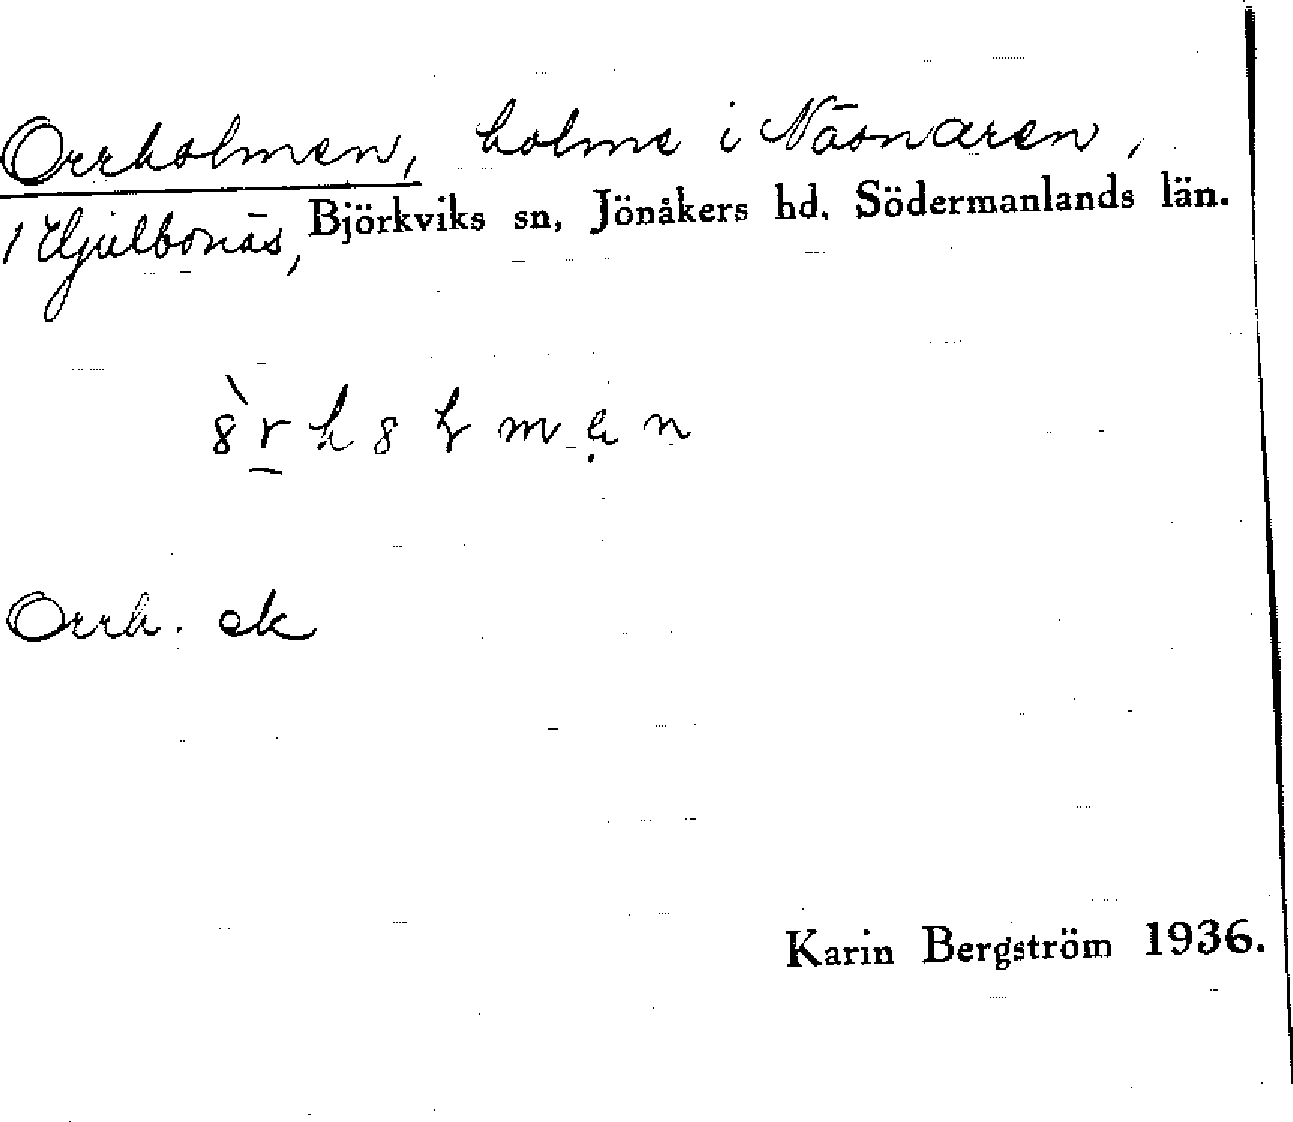 Orrholmen, holme i Näsnaren,
1 Hjulbonäs, Björkviks sn, Jönåkers hd. Södermanlands län.
Orrh. ek
Karin Bergström 1936.